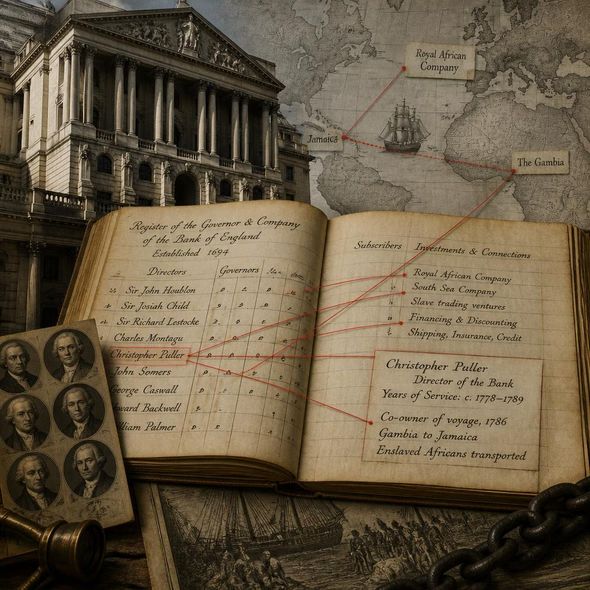 Royal African
Company
Jamaica
The Gambia
Register of the Governor & Company
of the Bank of England
Established 1694
Directors Governors
Sir John Houblon
Sir Josiah Child
Sir Richard Lestocke
Charles Montagu
Christopher Puller
John Somers
George Caswall
ward Backwell
lliam Palmer
Subscribers Investments & Connections
Royal African Company
South Sea Company
Slave trading ventures
Financing & Discounting
Shipping, Insurance, Credit
Christopher Puller
Director of the Bank
Years of Service: c. 1778–1789
Co-owner of voyage, 1786
Gambia to Jamaica
Enslaved Africans transported